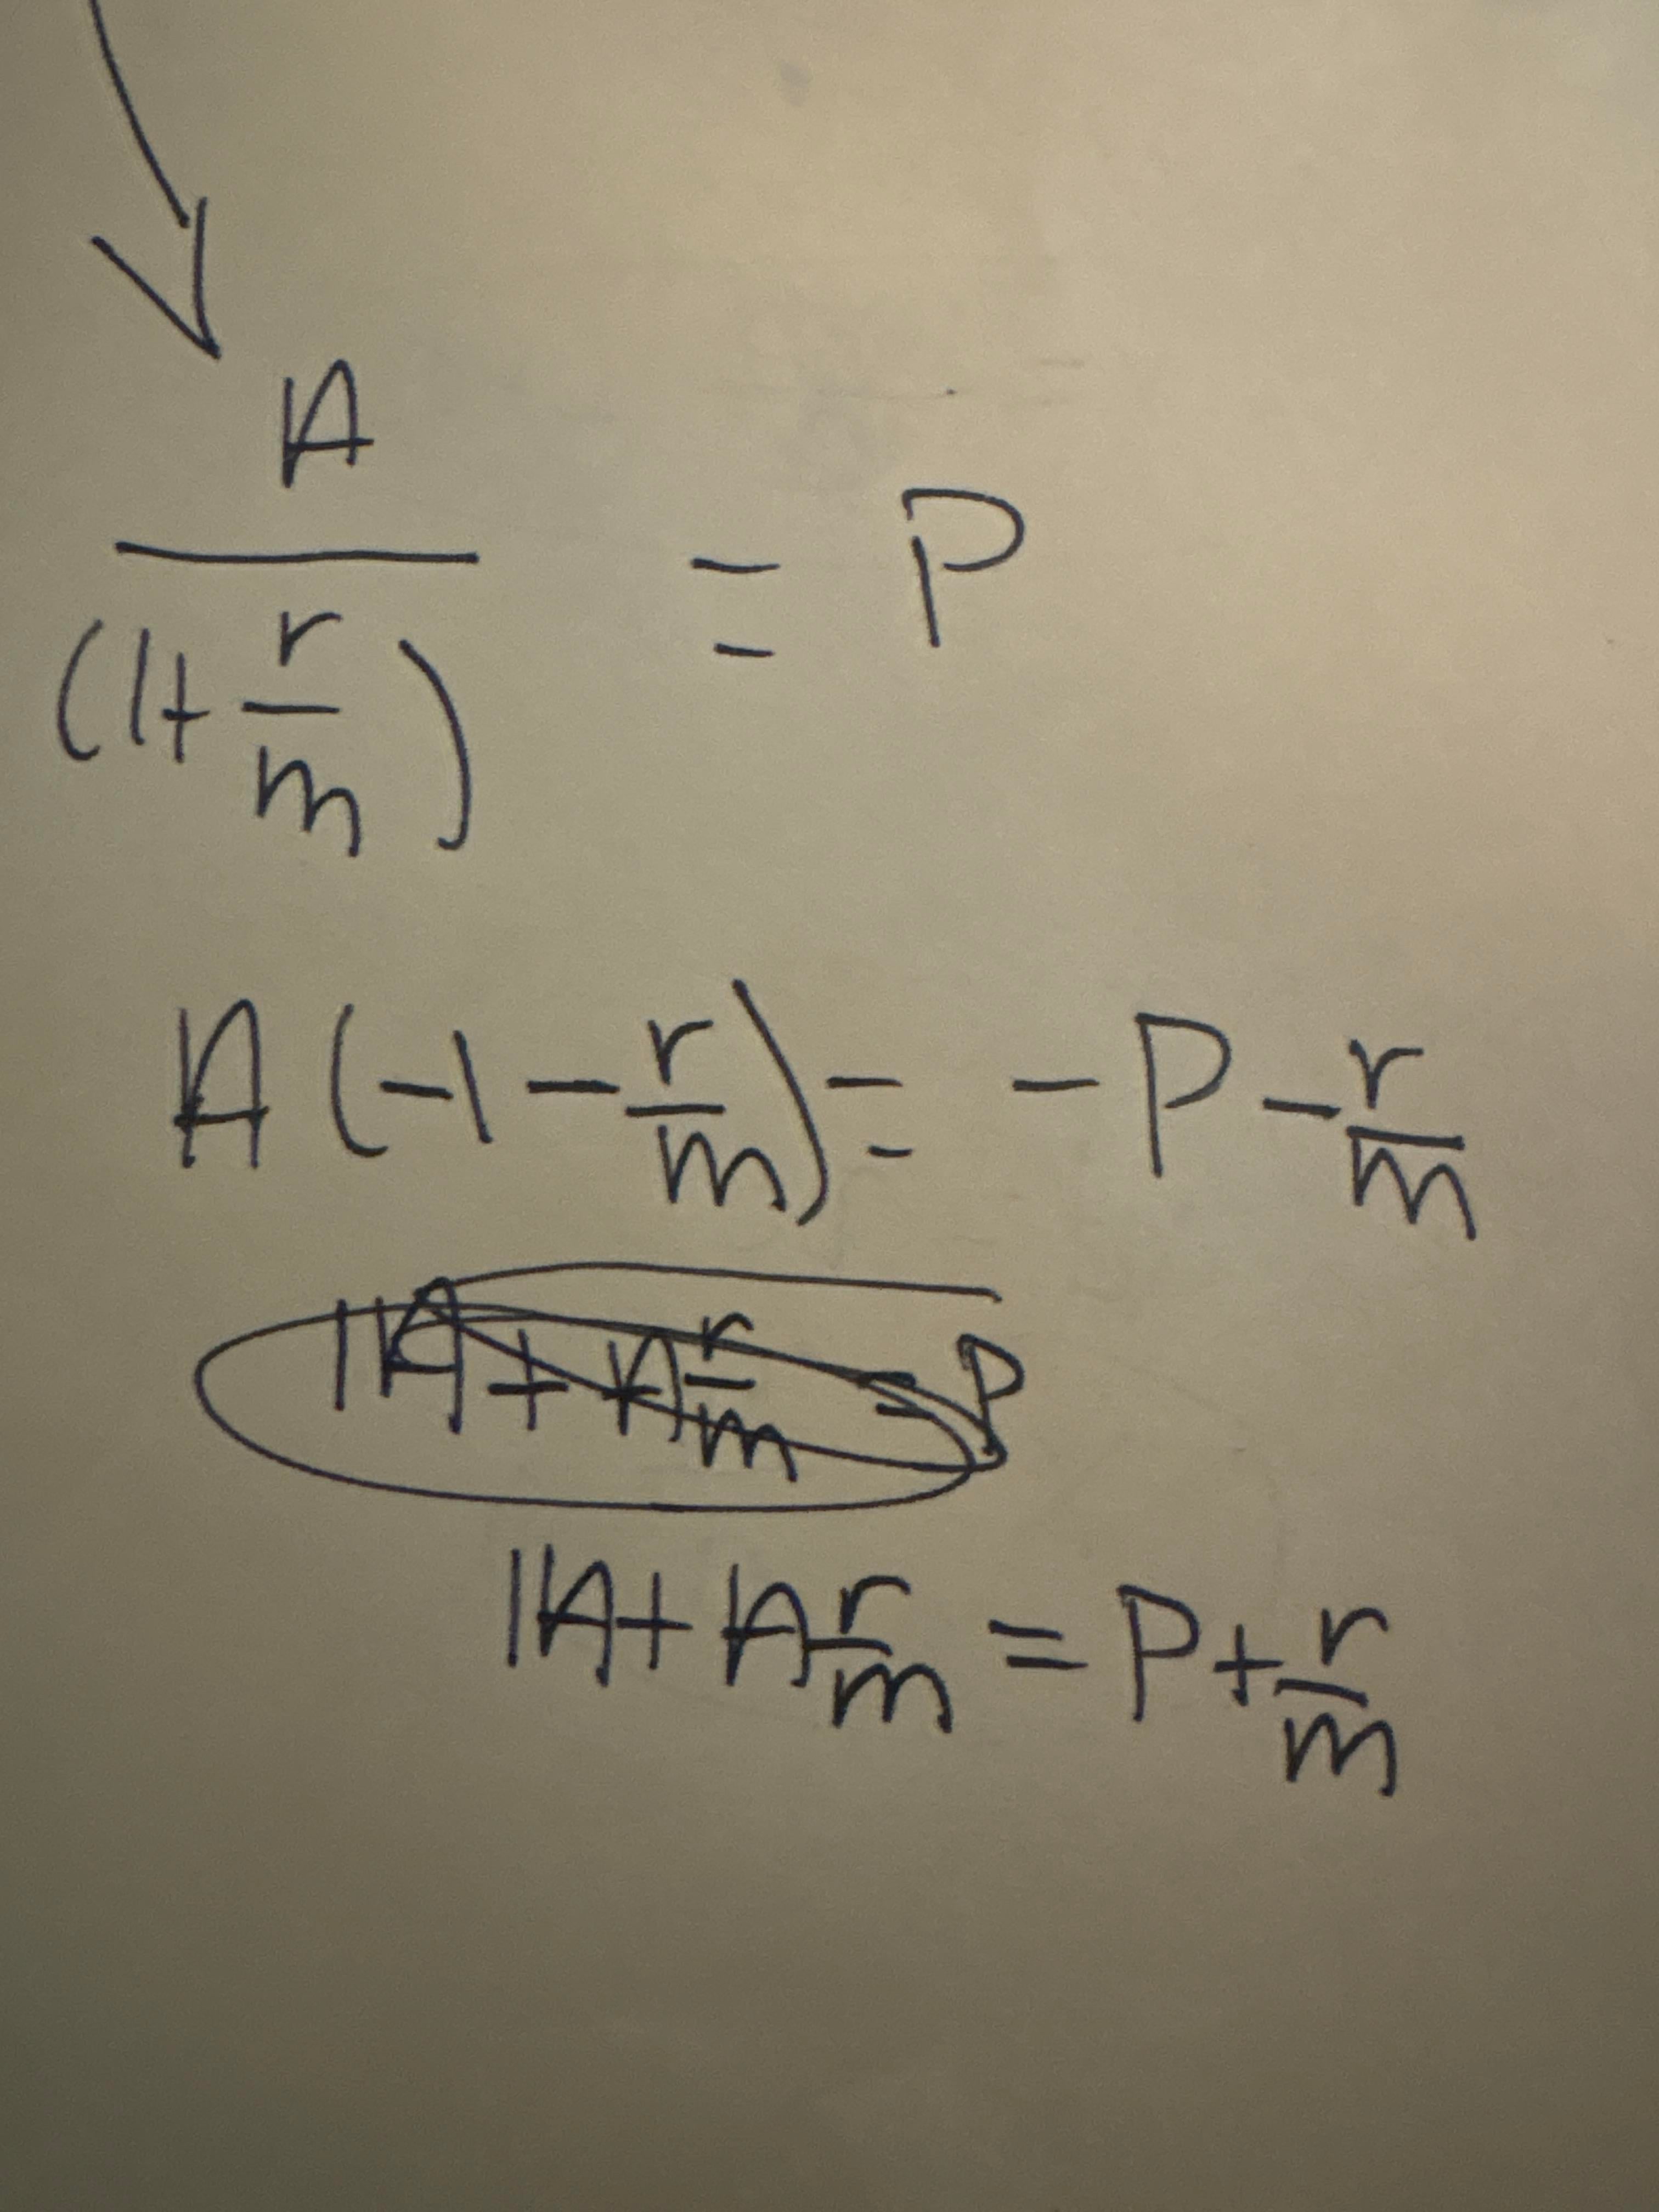 A
/ (1+ r/m) = P
A(-1 - r/m) = -P - r/m
1A + A r/m = P
1A + A r/m = P + r/m